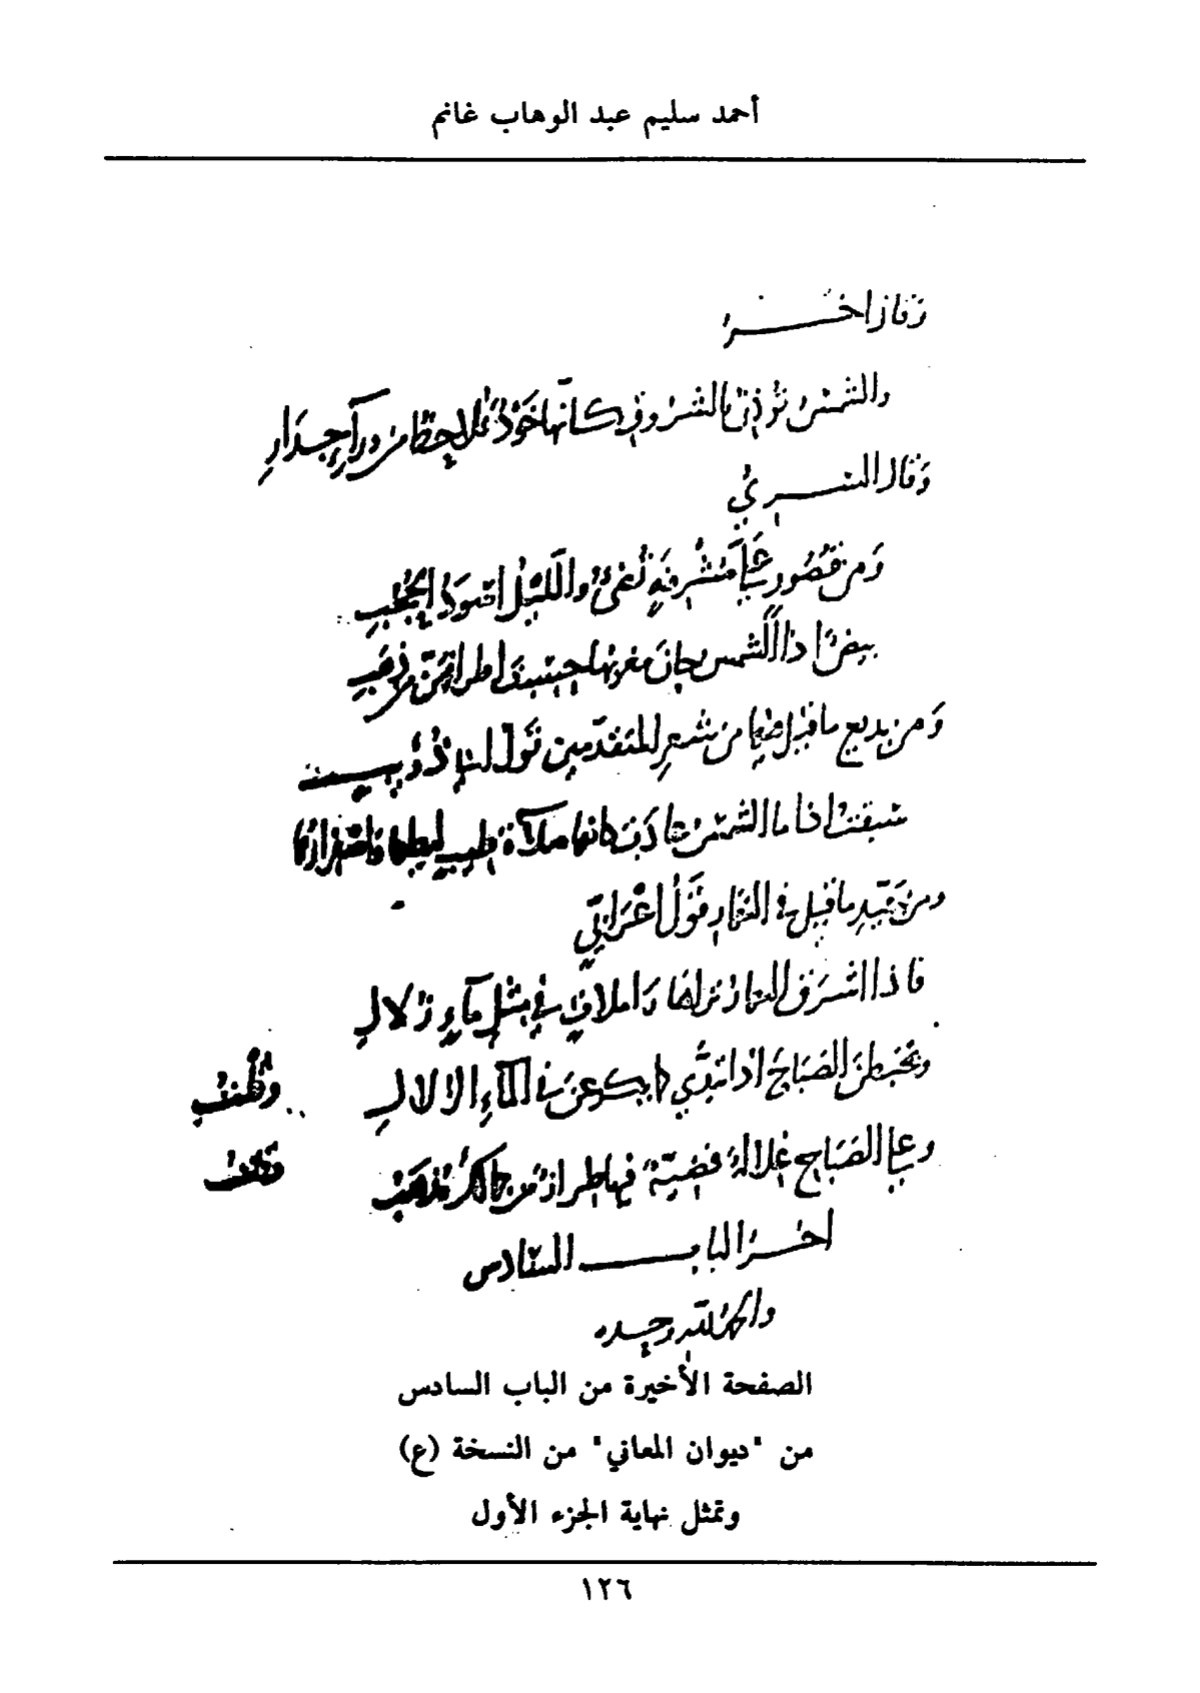 أحمد سليم عبد الوهاب غانم
وقال آخر
والشمس تؤذن بالشروق كأنها خود تلاحظ من وراء جدار
وقال السري
ومن قصور عليه مشرفة تضيء والليل أسود الحجب
بيض إذا الشمس حان مغربها حسبت أطرافهن من ذهب
ومن بديع ما قيل فيها من شعر المتقدمين قول أبي ذؤيب
سبقت إذا ما الشمس كانت كأنها صلاءة طيب ليطها واصفرارها
ومن جيد ما قيل في النهار قول أعرابي
فإذا أشرق النهار تراها
في مثل ماء زلال
الصباح إذا تبدى كما يكرعن في الماء الزلال
وقلت
وعلى الصباح غلالة فضية فيها طراز من مذهب
آخر الباب السادس
والحمد لله وحده
الصفحة الأخيرة من الباب السادس
من "ديوان المعاني" من النسخة (ع)
وتمثل نهاية الجزء الأول
١٢٦